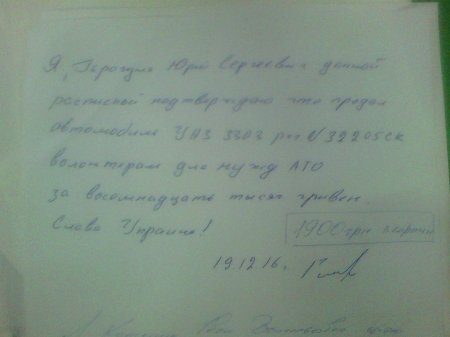 Я, Юрий Сергеевич данной
распиской подтверждаю что продал
автомобиль УАЗ 3303 рег № 39205СК
волонтерам для нужд АТО
за восемнадцать тысяч гривен.
Слава Украине!
1900 грн
19.12.16г.